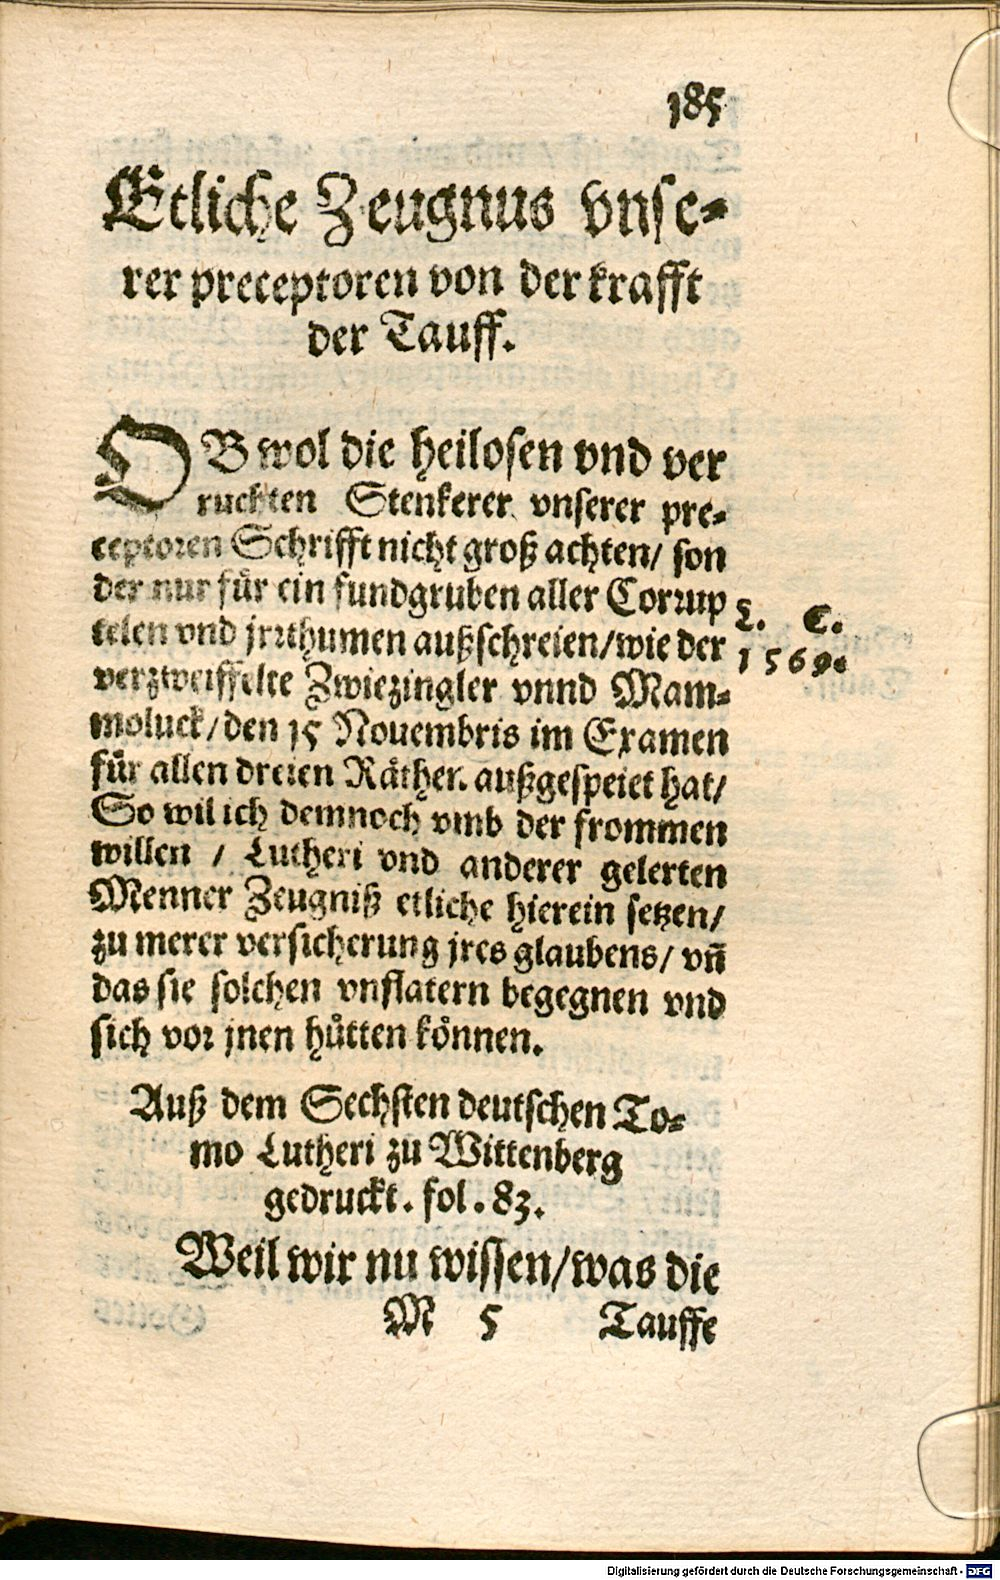 185
Etliche Zeugnus vnse⸗
rer preceptoren von der krafft
der Tauff.
OB wol die heilosen vnd ver
ruchten Stenkerer vnserer pre⸗
ceptoren Schrifft nicht groß achten/ son
der nur fuͤr ein fundgruben aller Corrup
telen vnd jrrthumen außschreien/wie der
L. C.
1569.
verzweiffelte Zwiezingler vnnd Mam⸗
moluck/den 15 Nouembris im Examen
fuͤr allen dreien Raͤthen außgespeiet hat/
So wil ich demnoch vmb der frommen
willen / Lutheri vnd anderer gelerten
Menner Zeugniß etliche hierein setzen/
zu merer versicherung jres glaubens/ vñ
das sie solchen vnflatern begegnen vnd
sich vor jnen huͤtten koͤnnen.
Auß dem Sechsten deutschen To⸗
mo Lutheri zu Wittenberg
gedruckt. fol. 83.
Weil wir nu wissen/was die
M 5 Tauffe
Digitalisierung gefördert durch die Deutsche Forschungsgemeinschaft - DFG